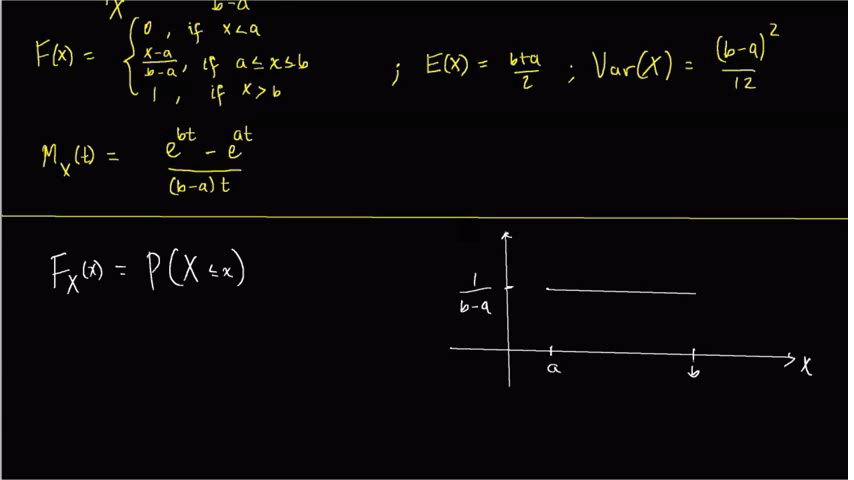 X b-a
F(x) = { 0 , if x<a
x-a/b-a , if a≤x≤b
1 , if x>b
; E(X) = b+a/2 ; Var(X) = (b-a)²/12
M_X(t) = e^bt - e^at / (b-a)t
F_X(x) = P(X ≤ x)
1/b-a
a b X